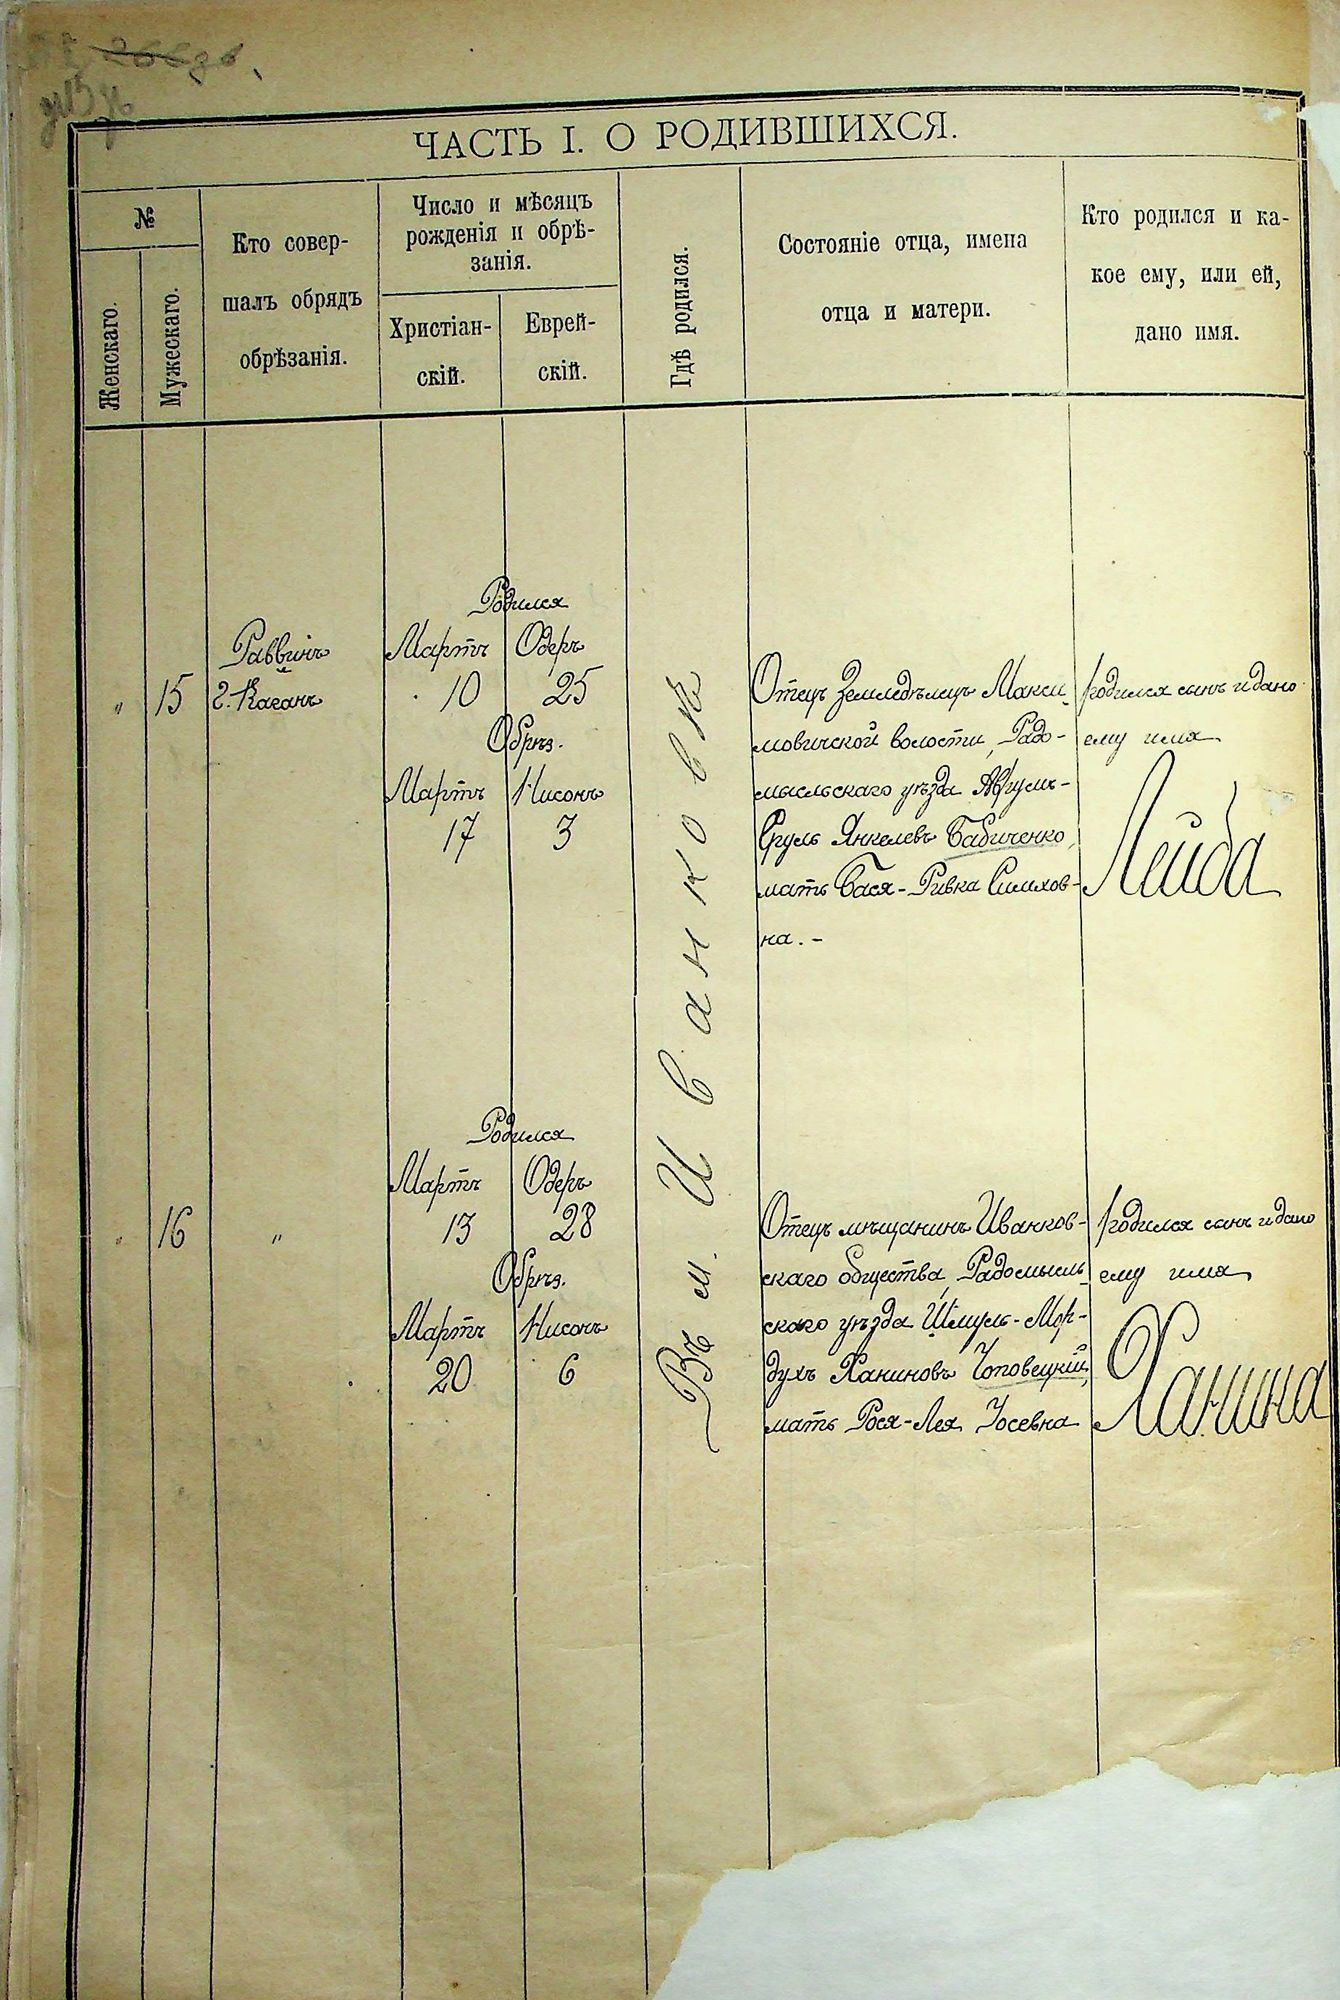 ЧАСТЬ I. О РОДИВШИХСЯ.
№
Женскаго.
Мужескаго.
Кто совер-
шалъ обрядъ
обрѣзанія.
Число и мѣсяцъ
рожденія и обрѣ-
занія.
Христіан-
скій.
Еврей-
скій.
Гдѣ родился.
Состояніе отца, имена
отца и матери.
Кто родился и ка-
кое ему, или ей,
дано имя.
Въ м. Иванковѣ
Родился
Раввинъ Мартъ Одеръ
" 15 Г. Каганъ 10 25
Обрѣз.
Мартъ Нисонъ
17 3
Отецъ Земледѣлецъ Макси-
мовичской волости, Радо-
мысльскаго уѣзда
Сруль Янкелевъ Бабиченко,
мать Бася-Ривка Симхов-
на. -
родился сынъ и дано
ему имя
Лейба
Родился
Мартъ Одеръ
" 16 " 13 28
Обрѣз.
Мартъ Нисонъ
20 6
Отецъ мѣщанинъ Иванков-
скаго общества, Радомысль-
скаго уѣзда Шмуль-Мор-
духъ Ханиновъ Чоповецкій,
мать Рося-Лея Іосевна
родился сынъ и дано
ему имя
Ханина